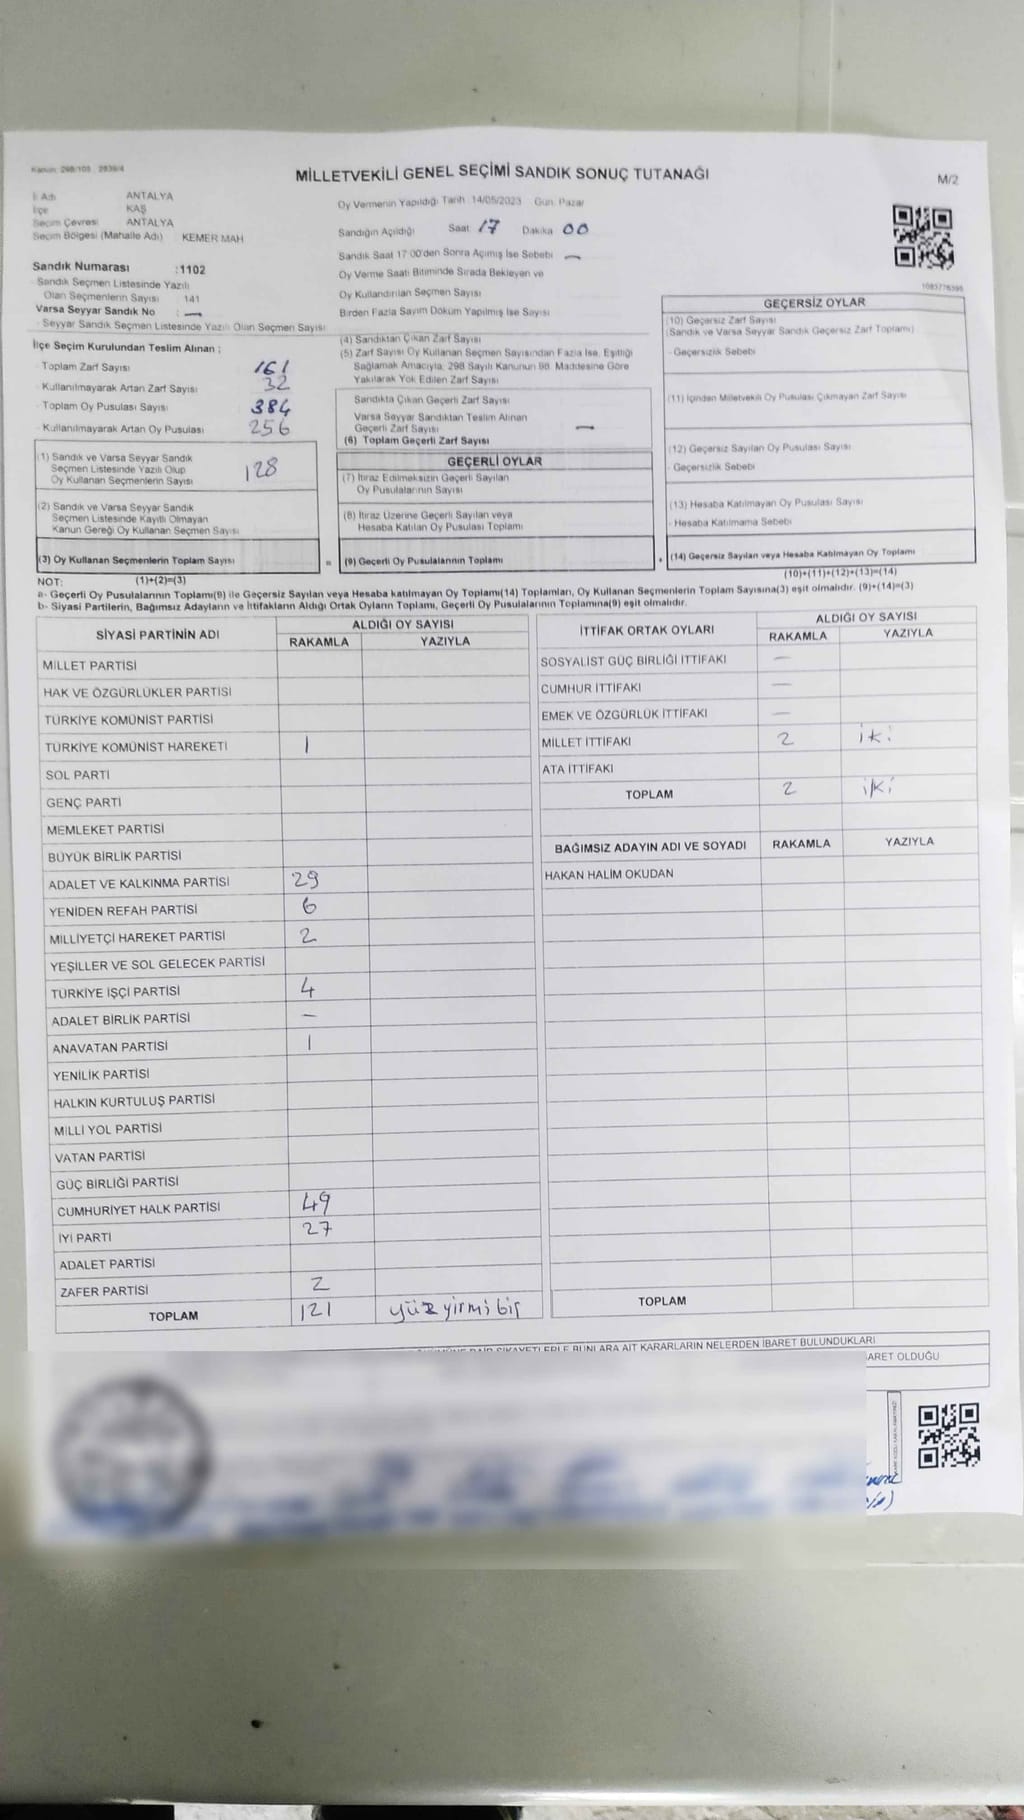 Kanun: 298/105 , 2839/4
MİLLETVEKİLİ GENEL SEÇİMİ SANDIK SONUÇ TUTANAĞI
M/2
İl Adı ANTALYA
İlçe KAŞ
Seçim Çevresi ANTALYA
Seçim Bölgesi (Mahalle Adı) KEMER MAH
Sandık Numarası :1102
Sandık Seçmen Listesinde Yazılı
Olan Seçmenlerin Sayısı 141
Varsa Seyyar Sandık No : —
Seyyar Sandık Seçmen Listesinde Yazılı Olan Seçmen Sayısı
İlçe Seçim Kurulundan Teslim Alınan :
Toplam Zarf Sayısı 161
Kullanılmayarak Artan Zarf Sayısı 32
Toplam Oy Pusulası Sayısı 384
Kullanılmayarak Artan Oy Pusulası 256
(1) Sandık ve Varsa Seyyar Sandık
Seçmen Listesinde Yazılı Olup
Oy Kullanan Seçmenlerin Sayısı 128
(2) Sandık ve Varsa Seyyar Sandık
Seçmen Listesinde Kayıtlı Olmayan
Kanun Gereği Oy Kullanan Seçmen Sayısı
(3) Oy Kullanan Seçmenlerin Toplam Sayısı
Oy Vermenin Yapıldığı Tarih 14/05/2023 Gün Pazar
Sandığın Açıldığı Saat 17 Dakika 00
Sandık Saat 17:00'den Sonra Açımış İse Sebebi —
Oy Verme Saati Bitiminde Sırada Bekleyen ve
Oy Kullandırılan Seçmen Sayısı
Birden Fazla Sayım Döküm Yapılmış İse Sayısı
(4) Sandıktan Çıkan Zarf Sayısı
(5) Zarf Sayısı Oy Kullanan Seçmen Sayısından Fazla İse, Eşitliği
Sağlamak Amacıyla, 298 Sayılı Kanunun 98. Maddesine Göre
Yakılarak Yok Edilen Zarf Sayısı
Sandıkta Çıkan Geçerli Zarf Sayısı
Varsa Seyyar Sandıktan Teslim Alınan
Geçerli Zarf Sayısı —
(6) Toplam Geçerli Zarf Sayısı
GEÇERLİ OYLAR
(7) İtiraz Edilmeksizin Geçerli Sayılan
Oy Pusulalarının Sayısı
(8) İtiraz Üzerine Geçerli Sayılan veya
Hesaba Katılan Oy Pusulası Toplamı
= (9) Geçerli Oy Pusulalarının Toplamı
1083776395
GEÇERSİZ OYLAR
(10) Geçersiz Zarf Sayısı
(Sandık ve Varsa Seyyar Sandık Geçersiz Zarf Toplamı)
- Geçersizlik Sebebi
(11) İçinden Milletvekili Oy Pusulası Çıkmayan Zarf Sayısı
(12) Geçersiz Sayılan Oy Pusulası Sayısı
- Geçersizlik Sebebi
(13) Hesaba Katılmayan Oy Pusulası Sayısı
- Hesaba Katılmama Sebebi
+ (14) Geçersiz Sayılan veya Hesaba Katılmayan Oy Toplamı
NOT: (1)+(2)=(3) (10)+(11)+(12)+(13)=(14)
a- Geçerli Oy Pusulalarının Toplamı(9) ile Geçersiz Sayılan veya Hesaba katılmayan Oy Toplamı(14) Toplamları, Oy Kullanan Seçmenlerin Toplam Sayısına(3) eşit olmalıdır. (9)+(14)=(3)
b- Siyasi Partilerin, Bağımsız Adayların ve İttifakların Aldığı Ortak Oyların Toplamı, Geçerli Oy Pusulalarının Toplamına(9) eşit olmalıdır.
SİYASİ PARTİNİN ADI ALDIĞI OY SAYISI
RAKAMLA YAZIYLA
MİLLET PARTİSİ
HAK VE ÖZGÜRLÜKLER PARTİSİ
TÜRKİYE KOMÜNİST PARTİSİ
TÜRKİYE KOMÜNİST HAREKETİ 1
SOL PARTİ
GENÇ PARTİ
MEMLEKET PARTİSİ
BÜYÜK BİRLİK PARTİSİ
ADALET VE KALKINMA PARTİSİ 29
YENİDEN REFAH PARTİSİ 6
MİLLİYETÇİ HAREKET PARTİSİ 2
YEŞİLLER VE SOL GELECEK PARTİSİ
TÜRKİYE İŞÇİ PARTİSİ 4
ADALET BİRLİK PARTİSİ —
ANAVATAN PARTİSİ 1
YENİLİK PARTİSİ
HALKIN KURTULUŞ PARTİSİ
MİLLİ YOL PARTİSİ
VATAN PARTİSİ
GÜÇ BİRLİĞİ PARTİSİ
CUMHURİYET HALK PARTİSİ 49
İYİ PARTİ 27
ADALET PARTİSİ
ZAFER PARTİSİ 2
TOPLAM 121 yüz yirmi bir
İTTİFAK ORTAK OYLARI ALDIĞI OY SAYISI
RAKAMLA YAZIYLA
SOSYALİST GÜÇ BİRLİĞİ İTTİFAKI —
CUMHUR İTTİFAKI —
EMEK VE ÖZGÜRLÜK İTTİFAKI —
MİLLET İTTİFAKI 2 iki
ATA İTTİFAKI
TOPLAM 2 iki
BAĞIMSIZ ADAYIN ADI VE SOYADI RAKAMLA YAZIYLA
HAKAN HALİM OKUDAN
TOPLAM
ŞİKAYETLERLE BUNLARA AİT KARARLARIN NELERDEN İBARET BULUNDUKLARI
OLDUĞU